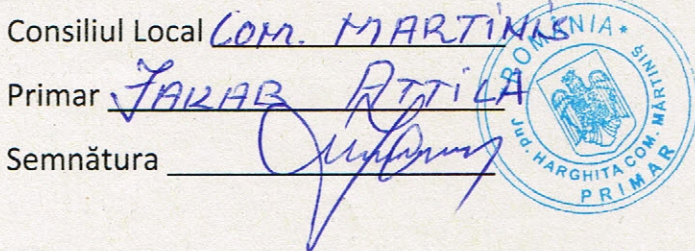 Consiliul Local Com. MARTINIS
Primar JAKAB ATTILA
Semnătura
ROMÂNIA * Jud. HARGHITA COM. MĂRTINIȘ
PRIMAR